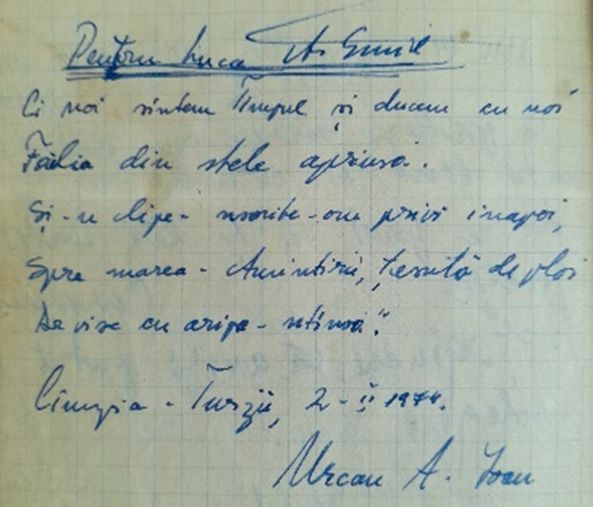 Pentru Luca A. Emil
Ci noi sîntem Timpul și ducem cu noi
Făclia din stele aprinsă.
Și-n clipe- nserite-om privi înapoi,
Spre marea- Amintirii, țesută de ploi
De vise cu aripa-ntinsă".
Cîmpia - Turzii, 2-II 1974.
Urcan A. Ioan